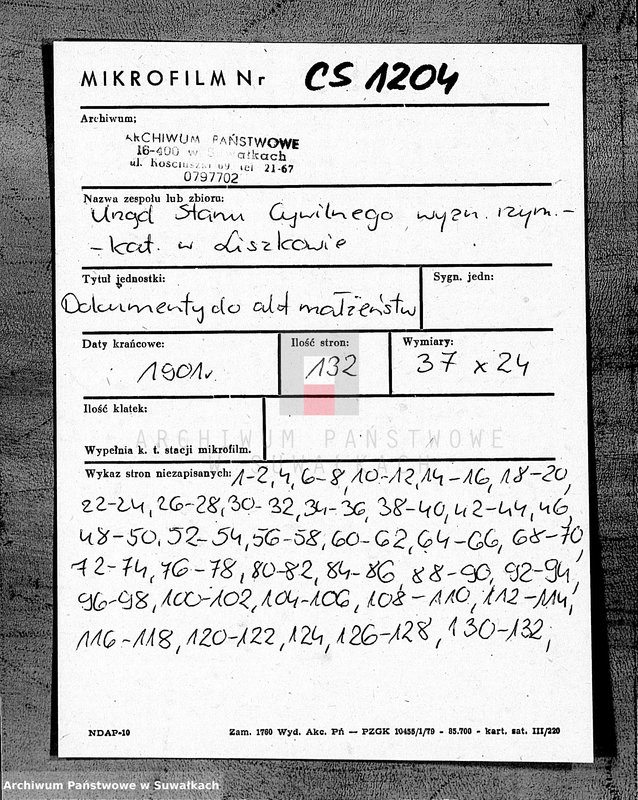 MIKROFILM Nr CS 1204
Archiwum;
ARCHIWUM PAŃSTWOWE
16-400 w Suwałkach
ul. Kościuszki 69 tel 21-67
0797702
Nazwa zespołu lub zbioru:
Urząd Stanu Cywilnego wyzn. rzym.-
-kat. w Liszkowie
Tytuł jednostki:
Sygn. jedn:
Dokumenty do akt małżeństw
Daty krańcowe:
1901r.
Ilość stron:
132
Wymiary:
37 x 24
Ilość klatek:
Wypełnia k. t. stacji mikrofilm.
ARCHIWUM PAŃSTWOWE
W SUWAŁKACH
Wykaz stron niezapisanych: 1-2, 4, 6-8, 10-12, 14-16, 18-20,
22-24, 26-28, 30-32, 34-36, 38-40, 42-44, 46,
48-50, 52-54, 56-58, 60-62, 64-66, 68-70,
72-74, 76-78, 80-82, 84-86, 88-90, 92-94,
96-98, 100-102, 104-106, 108-110, 112-114,
116-118, 120-122, 124, 126-128, 130-132,
NDAP-10
Zam. 1760 Wyd. Akc. Pń — PZGK 10455/1/79 - 85.700 - kart. sat. III/220
Archiwum Państwowe w Suwałkach